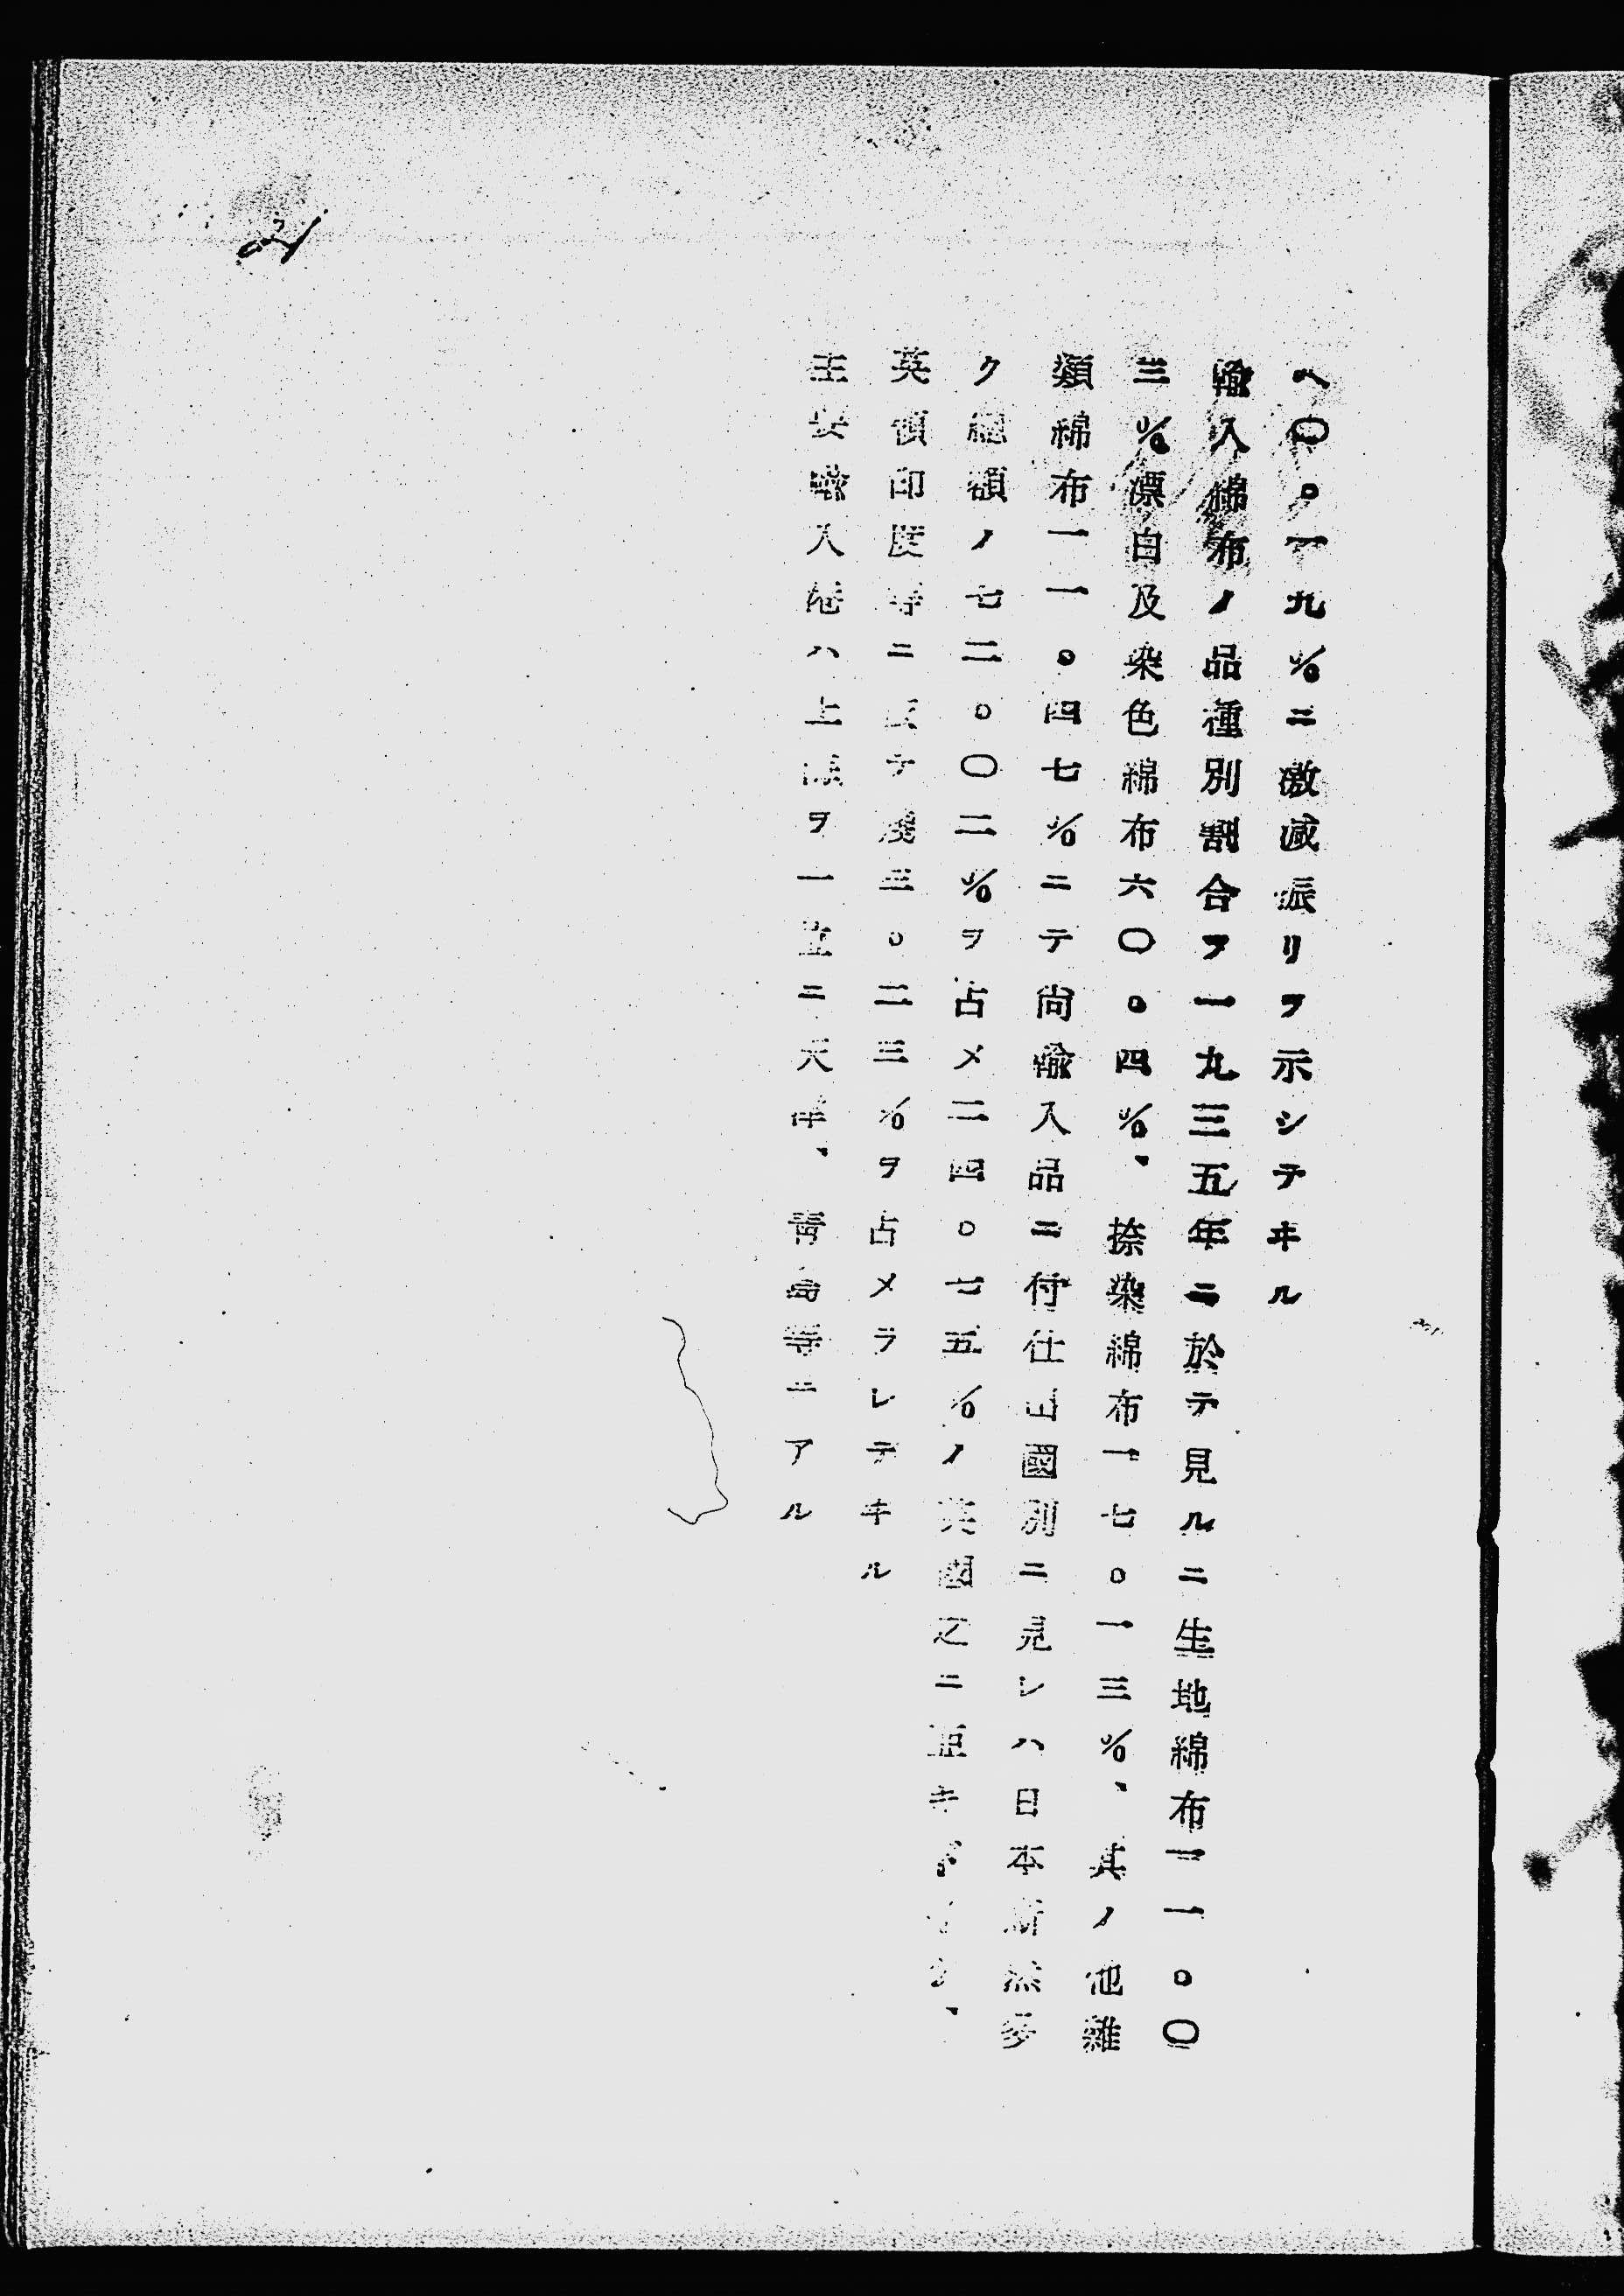 ヘ〇。一九%ニ激減振リヲ示シテヰル
輸入綿布ノ品種別割合ヲ一九三五年ニ於テ見ルニ生地綿布一一。〇
三%漂白及染色綿布六〇。四%、捺染綿布一七。一三%、其ノ他雜
類綿布一一。四七%ニテ尚輸入品ニ付仕出國別ニ見レハ日本斷然多
ク總額ノ七二。〇二%ヲ占メ二四。七五%ノ英國之ニ亜キ
英領印度等ニ テ殘三。二三%ヲ占メラレテヰル
主要輸入港ハ上海ヲ一位ニ天津、靑島等ニアル